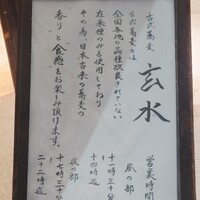 古式蕎麦
玄水
古式蕎麦とは
全国各地の品種改良されていない
在来種のみを使用しており
その為、日本古来の蕎麦の
香りと食感をお楽しみ頂けます。
営業時間
昼の部
十一時三十分
十四時迄
夜の部
十七時三十分
二十二時迄